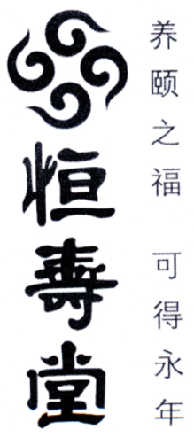 养颐之福 可得永年
恒壽堂